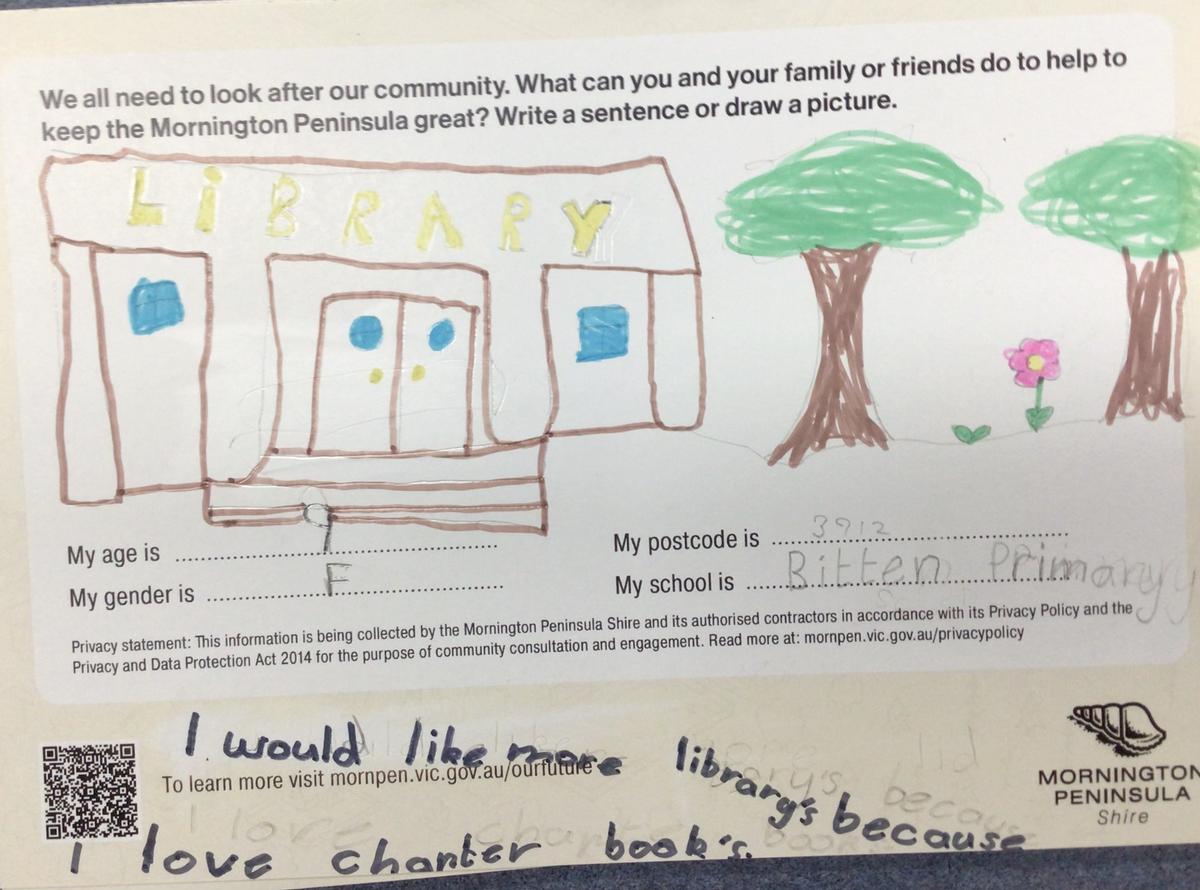 We all need to look after our community. What can you and your family or friends do to help to
keep the Mornington Peninsula great? Write a sentence or draw a picture.
LiBRARY
My age is 9
My postcode is 3912
My gender is F
My school is Bitten Primary
Privacy statement: This information is being collected by the Mornington Peninsula Shire and its authorised contractors in accordance with its Privacy Policy and the
Privacy and Data Protection Act 2014 for the purpose of community consultation and engagement. Read more at: mornpen.vic.gov.au/privacypolicy
I would like more library's because
To learn more visit mornpen.vic.gov.au/ourfuture
I love chapter book's.
MORNINGTON
PENINSULA
Shire